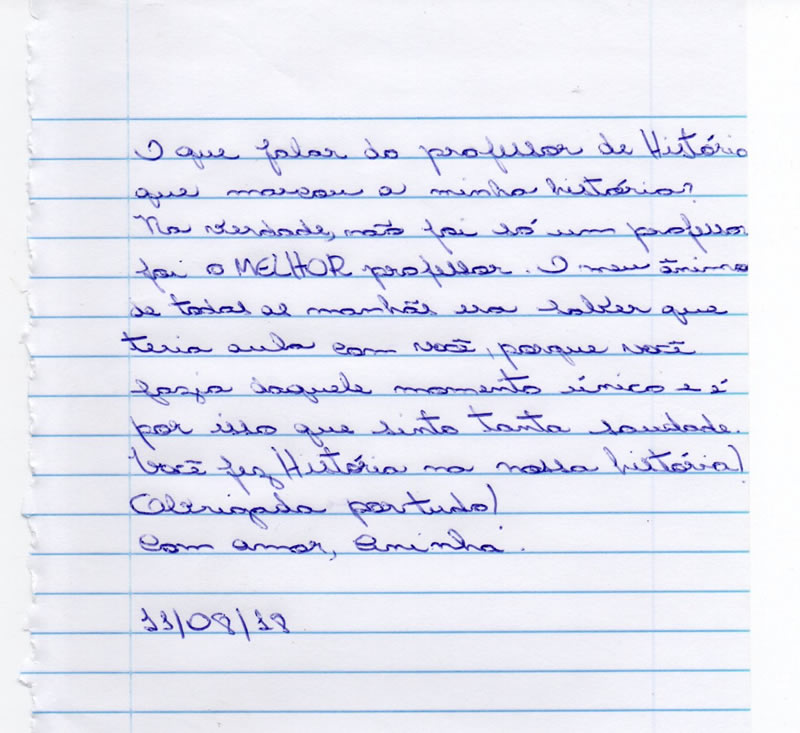 O que falar do professor de História
que marcou a minha história?
Na verdade, não foi só um professor
foi o MELHOR professor. O meu ânimo
de todas as manhãs era saber que
teria aula com você, porque você
fazia daquele momento único e é
por isso que sinto tanta saudade.
Você fez História na nossa história!
Obrigada por tudo!
Com amor, Aninha.
11/08/18